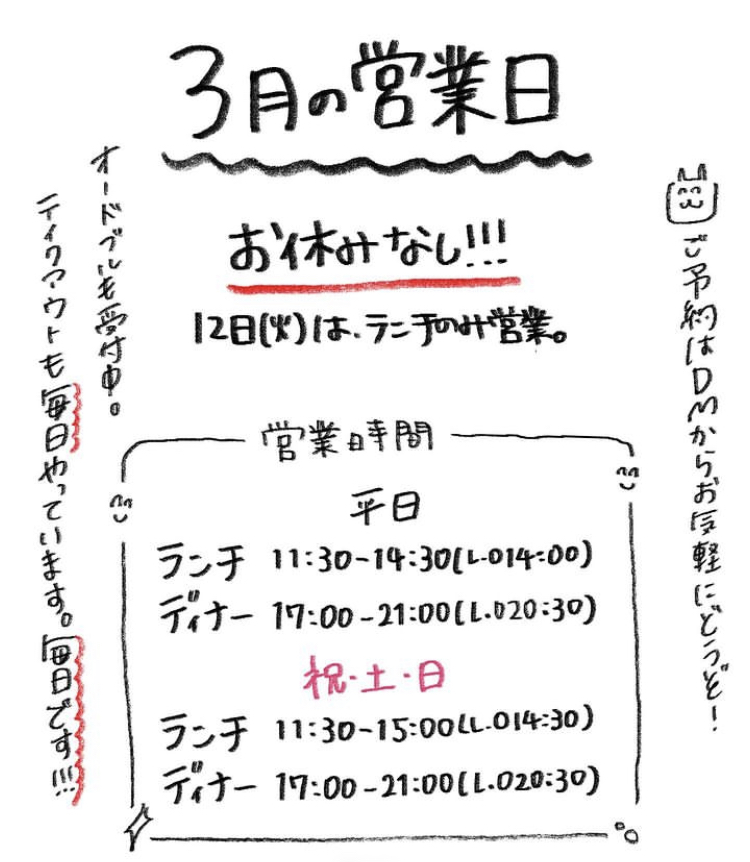 3月の営業日
お休みなし!!!
12日(火)は、ランチのみ営業。
ご予約はDMからお気軽にどうぞ!
オードブルも受付中。
テイクアウトも毎日やっています。毎日です!!!
営業時間
平日
ランチ 11:30-14:30(L.O14:00)
ディナー 17:00-21:00(L.O20:30)
祝・土・日
ランチ 11:30-15:00(L.O14:30)
ディナー 17:00-21:00(L.O20:30)